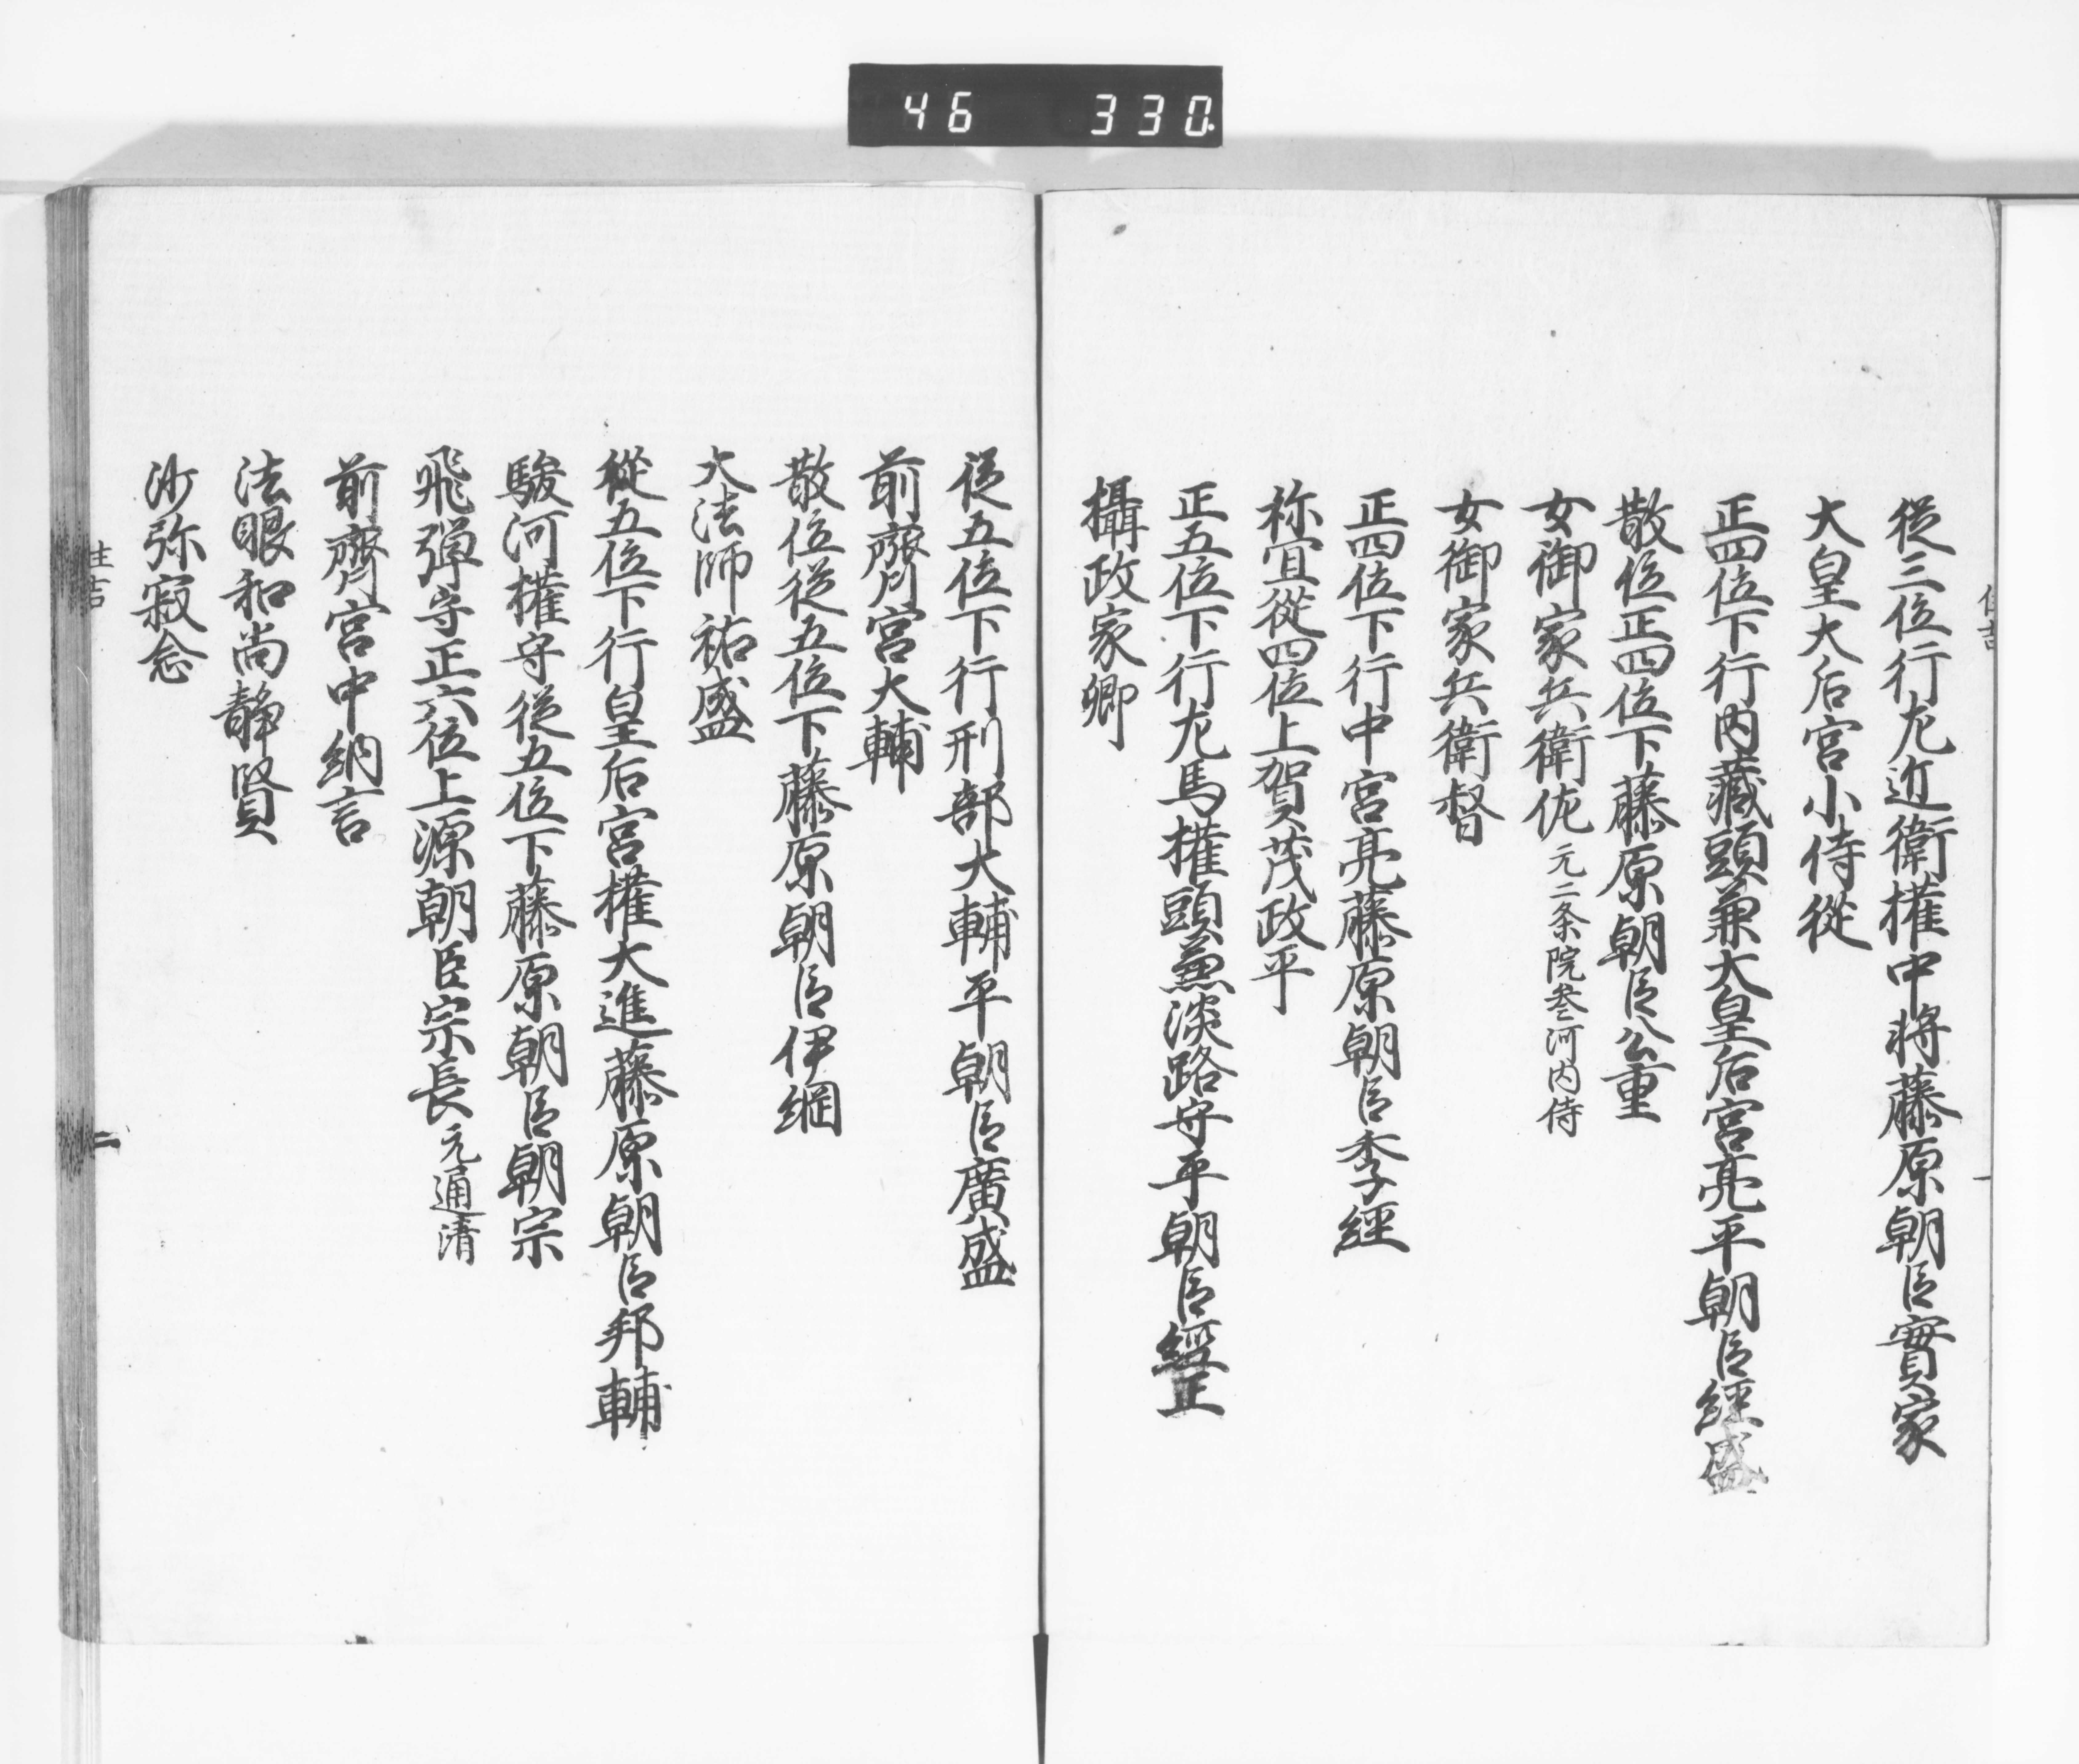 46 330
従三位行左近衛權中将藤原朝臣實家
大皇大后宮小侍従
正四位下行内藏頭兼大皇后宮亮平朝臣經盛
散位正四位下藤原朝臣公重
女御家兵衛佐 元二条院参河内侍
女御家兵衛督
正四位下行中宮亮藤原朝臣季經
祢宜從四位上賀茂政平
正五位下行左馬權頭兼淡路守平朝臣經正
攝政家卿
従五位下行刑部大輔平朝臣廣盛
前齋宮大輔
散位従五位下藤原朝臣伊綱
大法師祐盛
從五位下行皇后宮權大進藤原朝臣邦輔
駿河權守従五位下藤原朝臣朝宗
飛弾守正六位上源朝臣宗長 元通清
前齋宮中納言
法眼和尚静賢
沙弥寂念
住吉
二